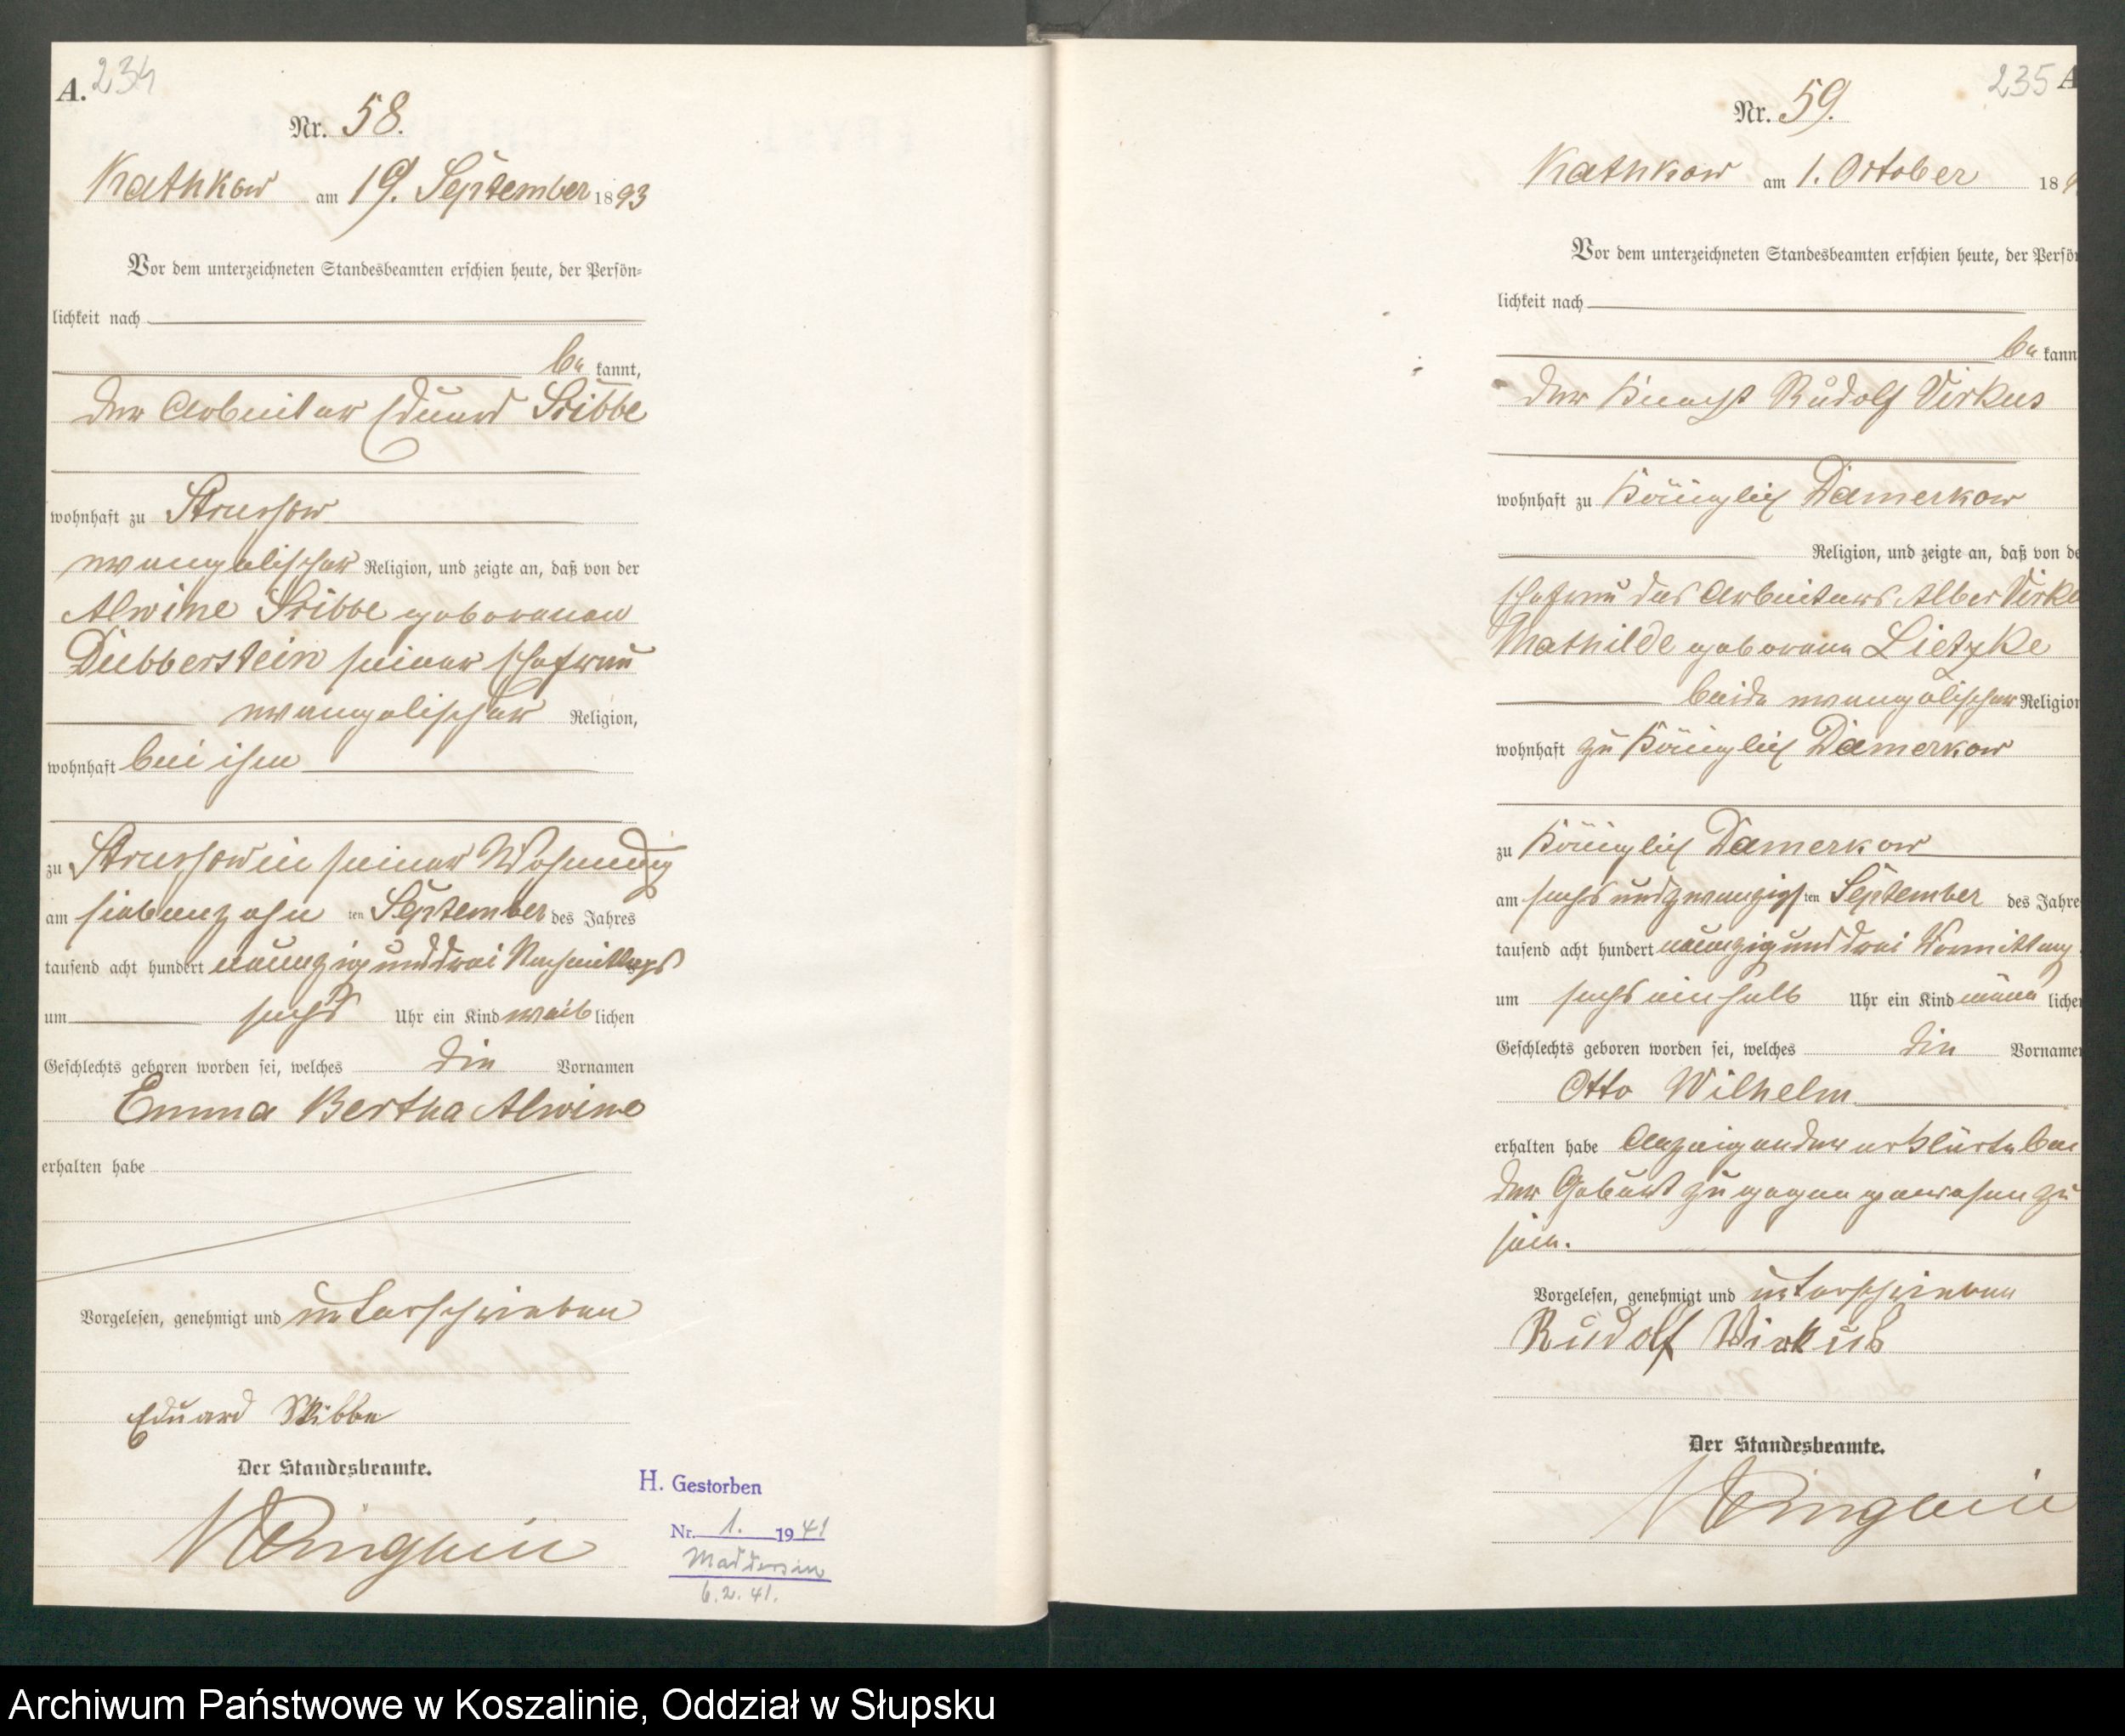 A. 234
Nr. 58.
Kathkow am 19. September 1893
Vor dem unterzeichneten Standesbeamten erschien heute, der Persön-
lichkeit nach
be kannt,
der Arbeiter Eduard
wohnhaft zu Strussow
evangelischer Religion, und zeigte an, daß von der
Alwine geborenen
Dubberstein seiner Ehefrau
evangelischer Religion,
wohnhaft bei ihm
zu Strussow in seiner Wohnung
am siebenzehn ten September des Jahres
tausend acht hundert neunzig und drei Nachmittags
um sechs Uhr ein Kind weib lichen
Geschlechts geboren worden sei, welches die Vornamen
Emma Bertha Alwine
erhalten habe
Vorgelesen, genehmigt und unterschrieben
Eduard
Der Standesbeamte.
H. Gestorben
Nr. 1. 1941
Maddersin
6.2.41.
235 A
Nr. 59.
Kathkow am 1. October 189
Vor dem unterzeichneten Standesbeamten erschien heute, der Persön
lichkeit nach
be kann
der Knecht Rudolf Virkus
wohnhaft zu Königlich Damerkow
Religion, und zeigte an, daß von de
Ehefrau des Arbeiters Albert Virku
Mathilde geborene Lietzke
beide evangelischer Religion
wohnhaft zu Königlich Damerkow
zu Königlich Damerkow
am sechs und zwanzigs ten September des Jahre
tausend acht hundert neunzig und drei Vormittag
um sechs ein halb Uhr ein Kind männ liche
Geschlechts geboren worden sei, welches die Vorname
Otto Wilhelm
erhalten habe Anzeigender erklärte bei
der Geburt zugegen gewesen zu
sein.
Vorgelesen, genehmigt und unterschrieben
Rudolf Wirkus
Der Standesbeamte.
Archiwum Państwowe w Koszalinie, Oddział w Słupsku